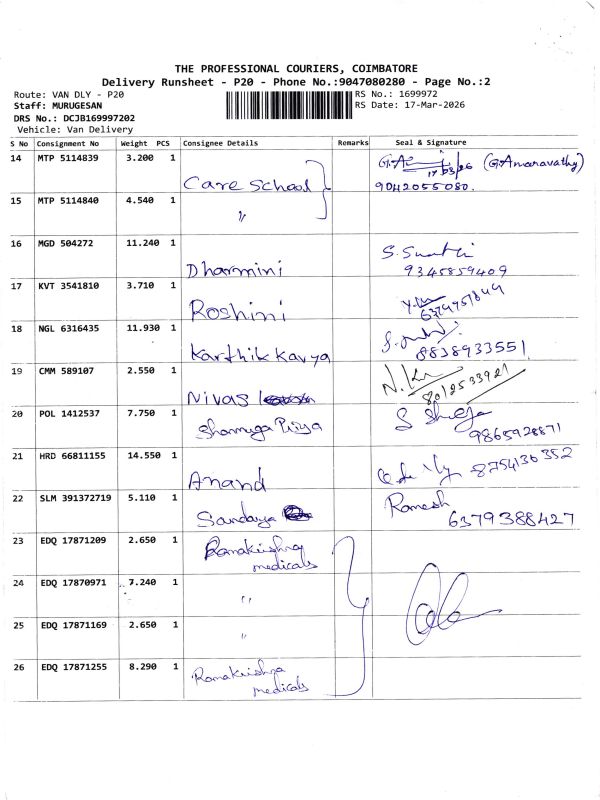 THE PROFESSIONAL COURIERS, COIMBATORE
Delivery Runsheet - P20 - Phone No.:9047080280 - Page No.:2
Route: VAN DLY - P20 RS No.: 1699972
Staff: MURUGESAN RS Date: 17-Mar-2026
DRS No.: DCJB169997202
Vehicle: Van Delivery
S No Consignment No Weight PCS Consignee Details Remarks Seal & Signature
14 MTP 5114839 3.200 1 Care School 17/03/26 (G.Amaravathy)
9042055080.
15 MTP 5114840 4.540 1 "
16 MGD 504272 11.240 1 Dharmini
9345859409
17 KVT 3541810 3.710 1 Roshini
18 NGL 6316435 11.930 1 Karthik Kavya 8838933551
19 CMM 589107 2.550 1 Nivas 8012533921
20 POL 1412537 7.750 1 Shamuga Priya
9865928871
21 HRD 66811155 14.550 1 Anand 8754136352
22 SLM 391372719 5.110 1 Sandaya Ramesh
6379388427
23 EDQ 17871209 2.650 1 Ramakrishna
medicals
24 EDQ 17870971 7.240 1 "
25 EDQ 17871169 2.650 1 "
26 EDQ 17871255 8.290 1 Ramakrishna
medicals